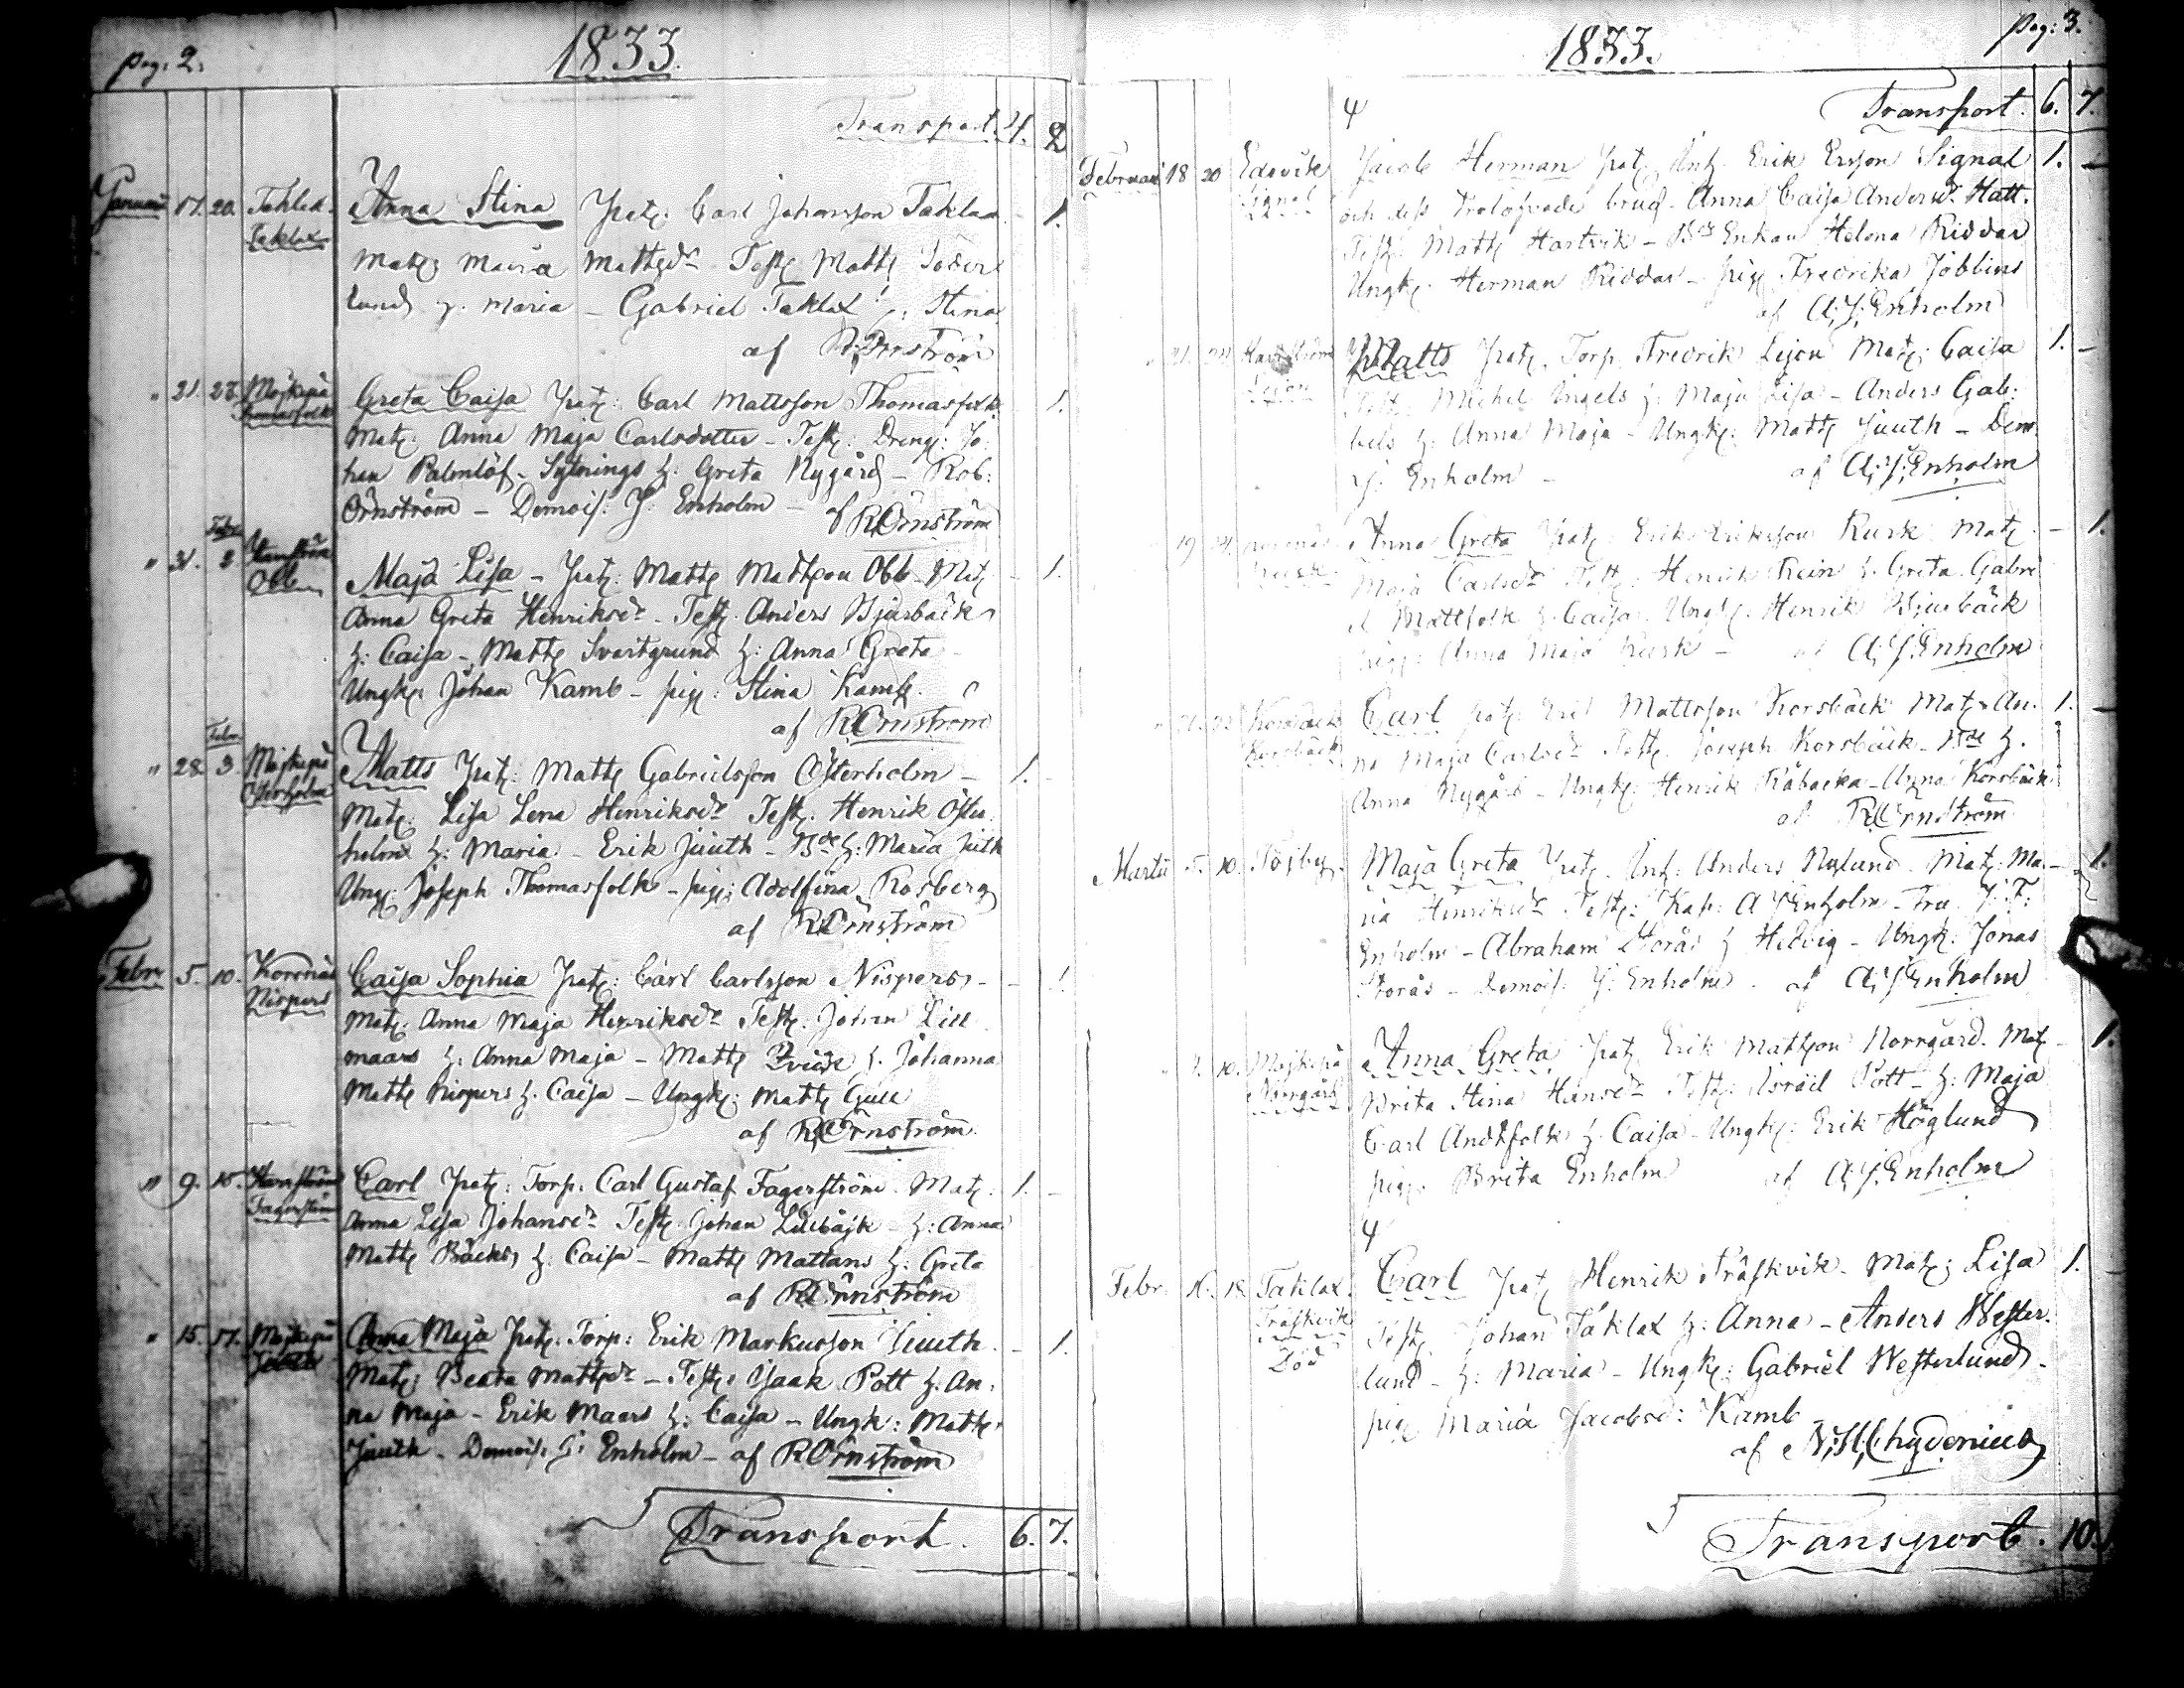 pag: 2.
1833.
Transport. 4. 2
Januari 17. 20. Taklax Anna Stina Pat: Carl Johansson Taklax - 1.
Taklax
Mat: Maria Mattsdr Test: Matts Söder
lund h. Maria - Gabriel Taklax h: Stina
af R: Örnström
" 21. 27. Molpe på Greta Caisa Pat: Carl Mattsson Thomasfolk - 1.
Thomasfolk
Mat: Anna Maja Carlsdotter - Test: Dreng: Jo-
han Palmlöf - Sytnings h: Greta Nygård - Rob:
Örnström - Demois: J: Enholm - af R Örnström
Febr
" 31. 2 Harrström Maja Lisa - Pat: Matts Mattson Obb - Mat - 1.
Obb
Anna Greta Henriksdr - Test: Anders Bjurbäck
h: Caisa - Matts Svartgrund h: Anna Greta -
Ungk: Johan Kamb - pig: Stina Kamb.
af R Örnström
Febr.
" 28. 3. Matts Pat: Matts Gabrielsson Österholm - 1.
Österholm
Mat: Lisa Lena Henriksdr Test: Henrik Öster
holm h: Maria - Erik Juuth - Bde h: Maria Juth
Ung: Joseph Thomasfolk - pig: Adolfina Rosberg
af R Örnström
Febr 5. 10. Korsnäs Caisa Sophia Pat: Carl Carlsson Nispers - - 1.
Nispers
Mat: Anna Maja Henriksdr Test: Johan Lill
maars h: Anna Maja - Matts h. Johanna
Matts Nispers h. Caisa - Ungk: Matts Gull
af R Örnström
" 9. 10. Harrström Carl Pat: Torp: Carl Gustaf Fagerström - Mat: 1. -
Fagerström
Anna Lisa Johansdr Test: Johan Lillbåsk - h: Anna
Matts Bäcks h. Caisa - Matts Mattans h: Greta
af R Örnström
" 15. 17. Anna Maja Pat: Torp: Erik Markusson Juuth - 1.
Juuth
Mat: Beata Mattsdr - Test: Isaak Pott h. An-
na Maja - Erik Maars h: Caisa - Ungk: Matts
Juuth - Demois: J: Enholm - af R Örnström
Transport. 6. 7.
pag: 3.
1833.
Transport. 6. 7.
Februari 18 20 Edsvik Jacob Herman Pat: Inh: Erik Ersson Signal 1. -
Signal
och dess trolofvade brud - Anna Caisa Andersdr Hatt.
Test: Matts Hartvik - Bds Enkan Helena Riddar
Ungk: Herman Riddar - pig: Fredrika Jöbbins
af A: J: Enholm
" 21. 24. Harrström Matts Pat: Torp. Fredrik Lejon Mat: Caisa 1. -
Lejon
Test: Michel Ingels h: Maja Lisa - Anders Gab:
bels h: Anna Maja - Ungk: Matts Juuth - Dem.
J: Enholm - af A: J: Enholm
" 19 24. Anna Greta Pat: Erik Eriksson Rusk Mat: - 1.
Rusk
Maja Carlsdr Test: Henrik Trein h. Greta. Gabri
el Mattfolk h. Caisa. Ungk. Henrik Bjurbäck
pig: Anna Maja Rusk - af A: J: Enholm
" 21. 22. Korsbäck Carl Pat: Eric Mattsson Korsbäck Mat: An- 1. -
Korsbäck
na Maja Carlsdr Test: Joseph Korsbäck - Bde h.
Anna Nygård - Ungk: Henrik Råbacka - Anna Korsbäck
af R Örnström
Martii 5. 10. Töjby. Maja Greta Pat: Inh: Anders Nylund. Mat: Ma- - 1.
ria Henriksdr Test: Kap: A J Enholm - Fru J: F:
Enholm - Abraham Storås h Hedvig - Ungk: Jonas
Storås - Demois: J: Enholm - af A: J: Enholm
" 7. 10. Anna Greta Pat: Erik Mattson Norrgård. Mat: - 1.
Norrgård
Brita Stina Hansdr Test: Israel Pott - h: Maja
Carl Andtfolk h. Caisa - Ungk: Erik Höglund
pig: Brita Enholm af A: J: Enholm
Febr. 16. 18. Taklax. Carl Pat: Henrik Träskvik - Mat: Lisa 1. -
Träskvik
Test: Johan Taklax h: Anna - Anders Wester-
Död
lund - h: Maria - Ungk: Gabriel Westerlund -
pig: Maria Jacobsd: Kamb
af N: H: Chydenius
Transport. 10.